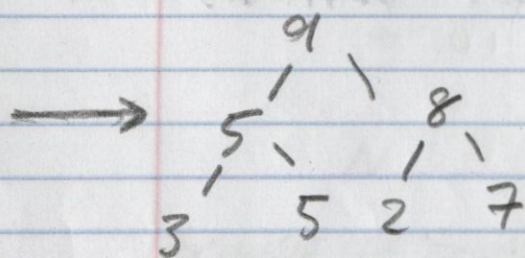 9
5 8
3 5 2 7